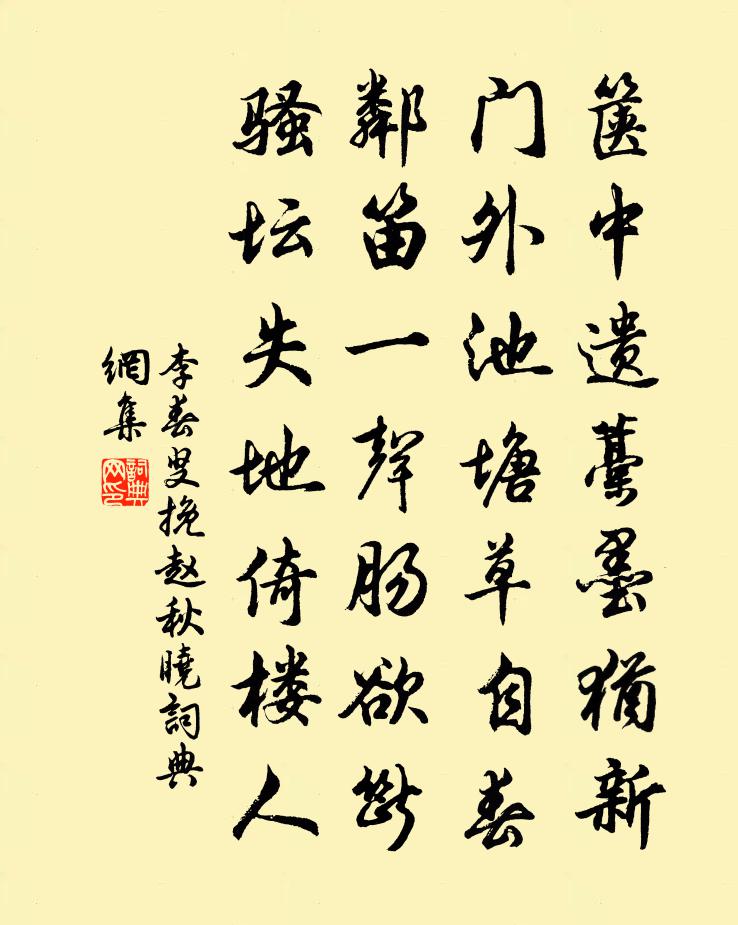 箧中遗藁墨犹新
门外池塘草自春
鄰笛一聲肠欲断
骚坛失地倚楼人
李春叟挽赵秋曉詞典
網集
詞典
网印